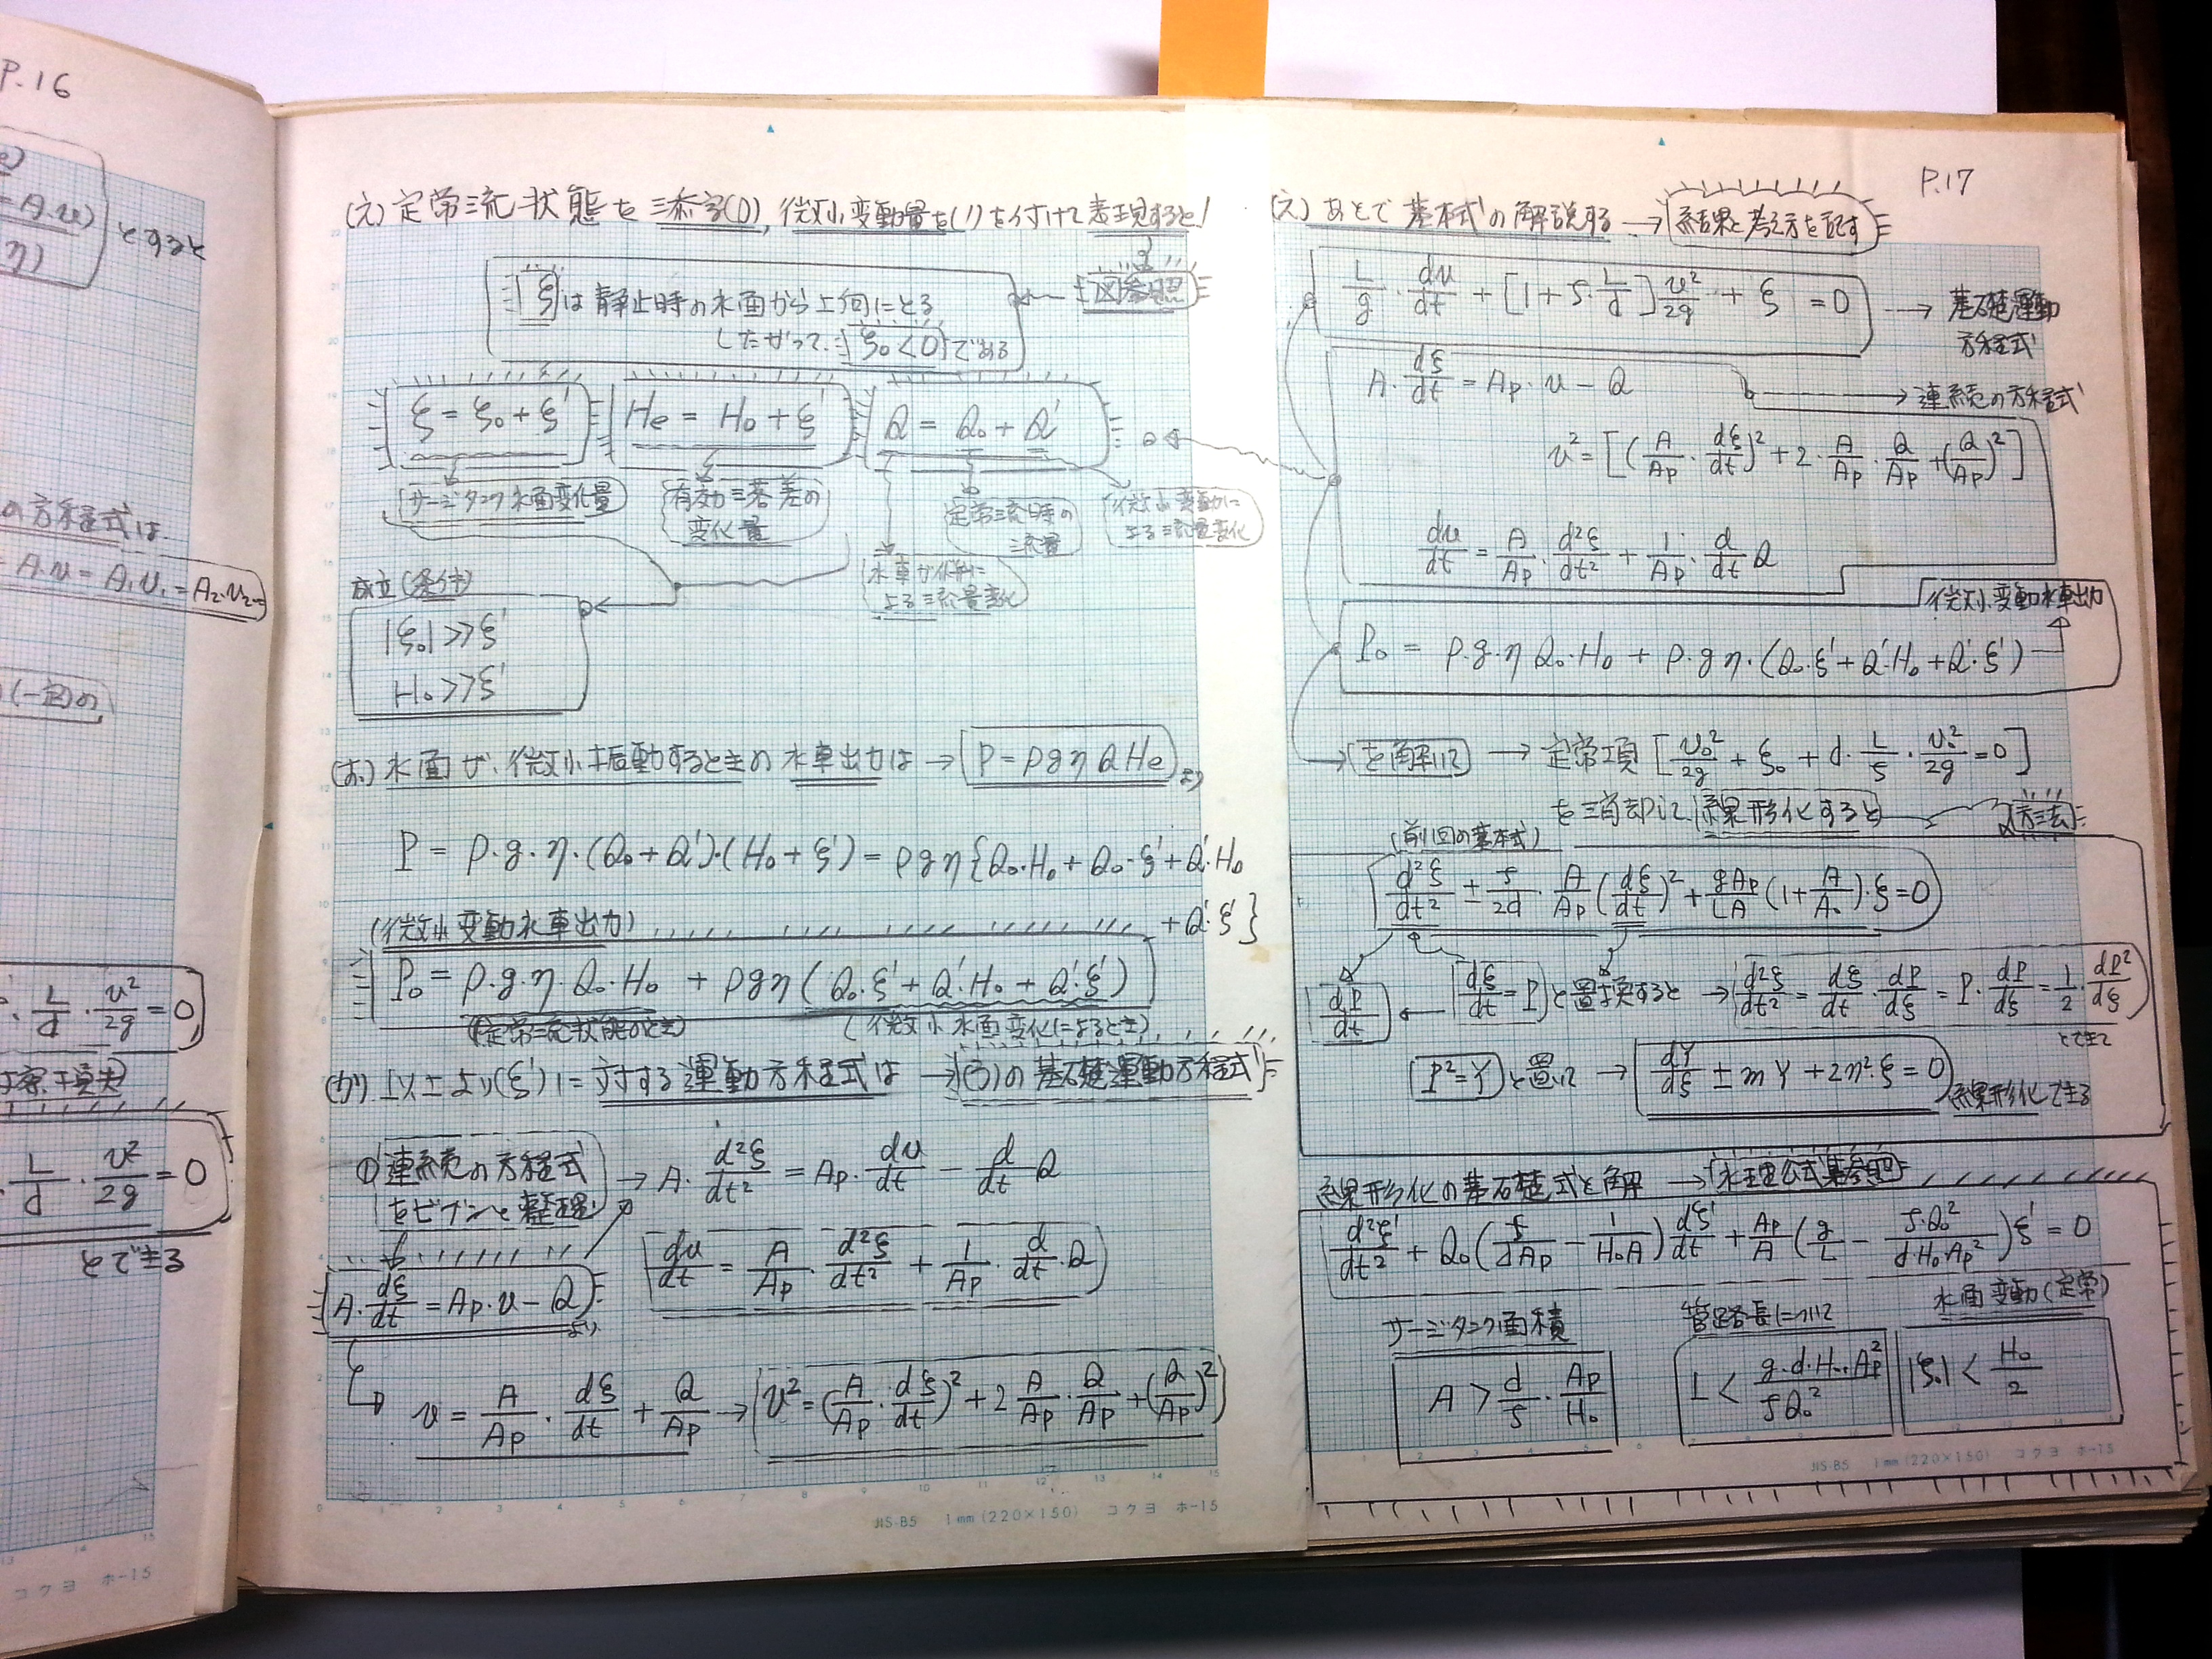 P.16
A・u)
η)
とすると
の方程式は
= A・u = A₁・u₁ = A₂・u₂
(一定)の
・L/d・u²/2g = 0
L/d・u²/2g = 0
とできる
コクヨ ホ-15
(え) 定常流状態を添字(0), 微小変動量を(')を付けて表現すると!
図参照
ξは静止時の水面から上向にとる
したがって, ξ₀<0である
ξ = ξ₀ + ξ'
He = H₀ + ξ'
Q = Q₀ + Q'
サージタンク水面変化量
有効落差の
変化量
定常流時の
流量
微小変動に
よる流量変化
よる流量変化
成立(条件)
|ξ₀| >> ξ'
H₀ >> ξ'
(お) 水面が, 微小振動するときの水車出力は → P = ρgηQHe より
P = ρ・g・η・(Q₀+Q')・(H₀+ξ') = ρgη{Q₀・H₀ + Q₀・ξ' + Q'・H₀
+ Q'・ξ'}
(微小変動水車出力)
P₀ = ρ・g・η・Q₀・H₀ + ρgη(Q₀・ξ' + Q'・H₀ + Q'・ξ')
(定常流状態のとき)
(微小水面変化によるとき)
(か) 以上より(ξ')に対する運動方程式は → (う)の基礎運動方程式
① 連続の方程式
をビブンと整理
→ A・d²ξ/dt² = Ap・du/dt − d/dt Q
du/dt = A/Ap・d²ξ/dt² + 1/Ap・d/dt・Q
A・dξ/dt = Ap・u − Q
より
u = A/Ap・dξ/dt + Q/Ap → u² = (A/Ap・dξ/dt)² + 2 A/Ap・Q/Ap + (Q/Ap)²
JIS-B5 1mm (220×150) コクヨ ホ-15
P.17
(え) あとで基本式の解説する → 結果と考え方を記す
L/g・du/dt + [1 + f・L/d] u²/2g + ξ = 0 → 基礎運動
方程式
A・dξ/dt = Ap・u − Q
→ 連続の方程式
u² = [(A/Ap・dξ/dt)² + 2・A/Ap・Q/Ap + (Q/Ap)²]
du/dt = A/Ap・d²ξ/dt² + 1/Ap・d/dt Q
微小変動水車出力
P₀ = ρ・g・η Q₀・H₀ + ρ・gη・(Q₀・ξ' + Q'・H₀ + Q'・ξ')
を解いて → 定常項 [u₀²/2g + ξ₀ + d・L/f・u₀²/2g = 0]
を消却して, 線形化すると
方法
(前回の基本式)
d²ξ/dt² ± f/2d・A/Ap (dξ/dt)² + gAp/LA (1 + A/A₀)・ξ = 0
dP/dt ← dξ/dt = P と置換すると → d²ξ/dt² = dξ/dt・dP/dξ = P・dP/dξ = 1/2・dP²/dξ
とできて
P² = Y と置いて → dY/dξ ± mY + 2n²・ξ = 0 線形化できる
線形化の基礎式を解 → 水理公式集参照
d²ξ'/dt² + Q₀(f/dAp − 1/H₀A) dξ'/dt + Ap/A (g/L − f・Q₀²/d・H₀・Ap²) ξ' = 0
サージタンク面積
管路長について
水面変動(定常)
A > d/f・Ap/H₀
L < g・d・H₀・Ap²/fQ₀²
|ξ₀| < H₀/2
JIS-B5 1mm (220×150) コクヨ ホ-15